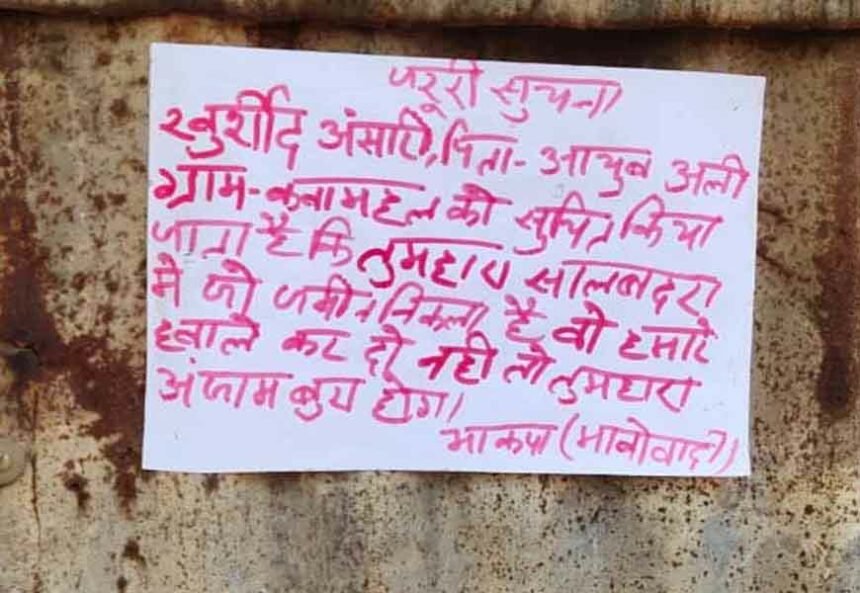 जरूरी सुचना
खुर्शीद अंसारी, पिता- आयुब अली
ग्राम- कबामहल को सुचित किया
जाता है कि तुमहारा सालबदरा
मे जो जमीन निकला है वो हमारे
हवाले कर दो नही तो तुमहारा
अंजाम बुरा होगा।
भाकपा (माओवादी)